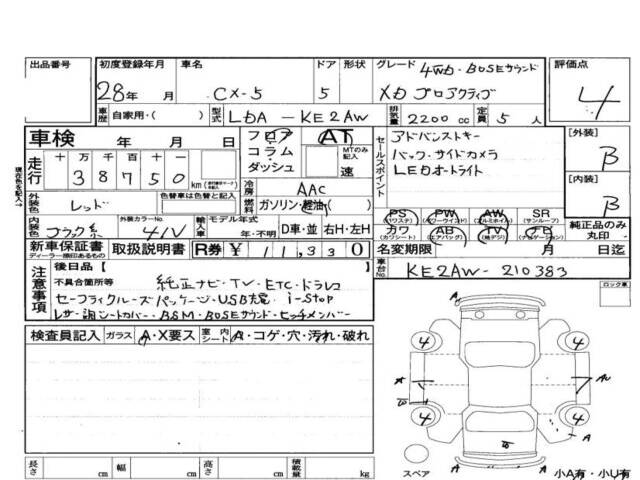 出品番号 初度登録年月 車名 ドア 形状 グレード 4WD・BOSEサウンド 評価点
28年 月 CX-5 5 XD プロアクティブ 4
車歴 自家用・( ) 型式 LDA-KE2AW 排気量 2200cc 定員 5人
車検 年 月 日 フロア AT アドバンストキー [外装]
走行 十万千百十 38750 km コラム MTのみ記入 セールスポイント バック・サイドカメラ B
ダッシュ 速 LEDオートライト [内装]
現在色を記入→ 色替車は色替と記入 冷房 AAC B
外装色 レッド 燃料 ガソリン・軽油( ) PS (パワステ) PW (パワーウインド) AW (アルミホイル) SR (サンルーフ) 純正品のみ丸印
内装色 ブラック系 外装カラーNo. 41V 輸入車 モデル年式 年・不明 D車・並 右H・左H カワ (カワシート) AB (エアバッグ) TV (純デジ) ナビ (ナビゲーション)
新車保証書 ディーラー捺印あるもの 取扱説明書 R券 ¥11,330 名変期限 月 日迄
注意事項 後日品[ ] 車台No. KE2AW-210383
不具合箇所等 純正ナビ・TV・ETC・ドラレコ ロック車
セーフティクルーズパッケージ・USB充電・i-stop
レザー調シートカバー・BSM・BOSEサウンド・ヒッチメンバー
検査員記入 ガラス A・X要ス 室内シート A・コゲ・穴・汚れ・破れ
A
4 4
A A
4 4
A A
長さ cm 幅 cm 高さ cm 積載量 kg スペア 小A有・小U有